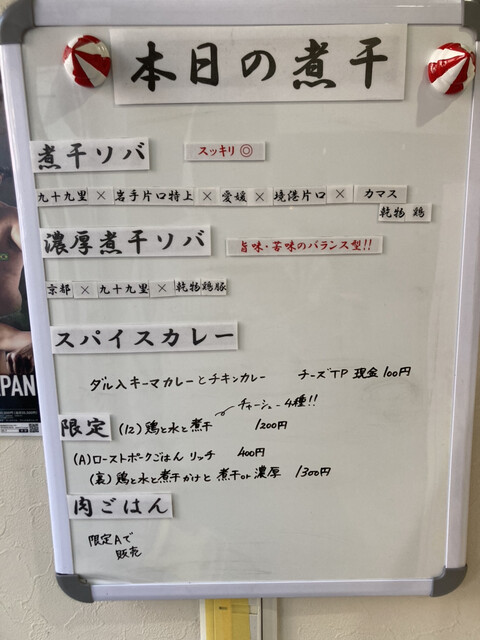 本日の煮干
煮干ソバ スッキリ◎
九十九里×岩手片口特上×愛媛×境港片口×カマス
乾物 鶏
濃厚煮干ソバ 旨味・苦味のバランス型!!
京都×九十九里×乾物鶏豚
スパイスカレー
ダル入キーマカレーとチキンカレー チーズTP 現金100円
チャーシュー4種!!
限定 (12) 鶏と水と煮干 1200円
(A)ローストポークごはん リッチ 400円
(裏) 鶏と水と煮干かけと 煮干or濃厚 1300円
肉ごはん
限定Aで
販売
PAN